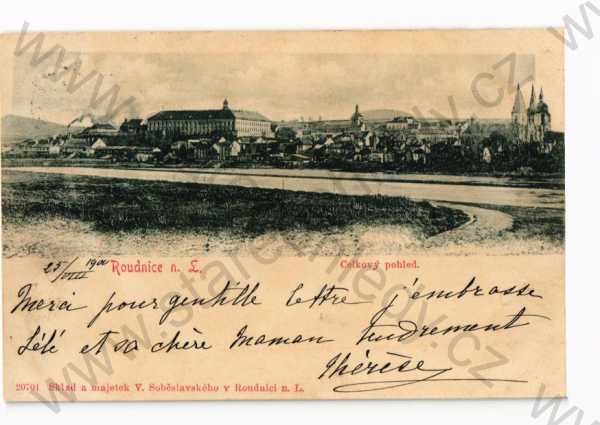 25/VIII 1900 Roudnice n. L. Celkový pohled.
Merci pour gentille lettre j'embrasse
Lélé et sa chère Maman tendrement
Thérèse
20701 Sklad a majetek V. Soběslavského v Roudnici n. L.